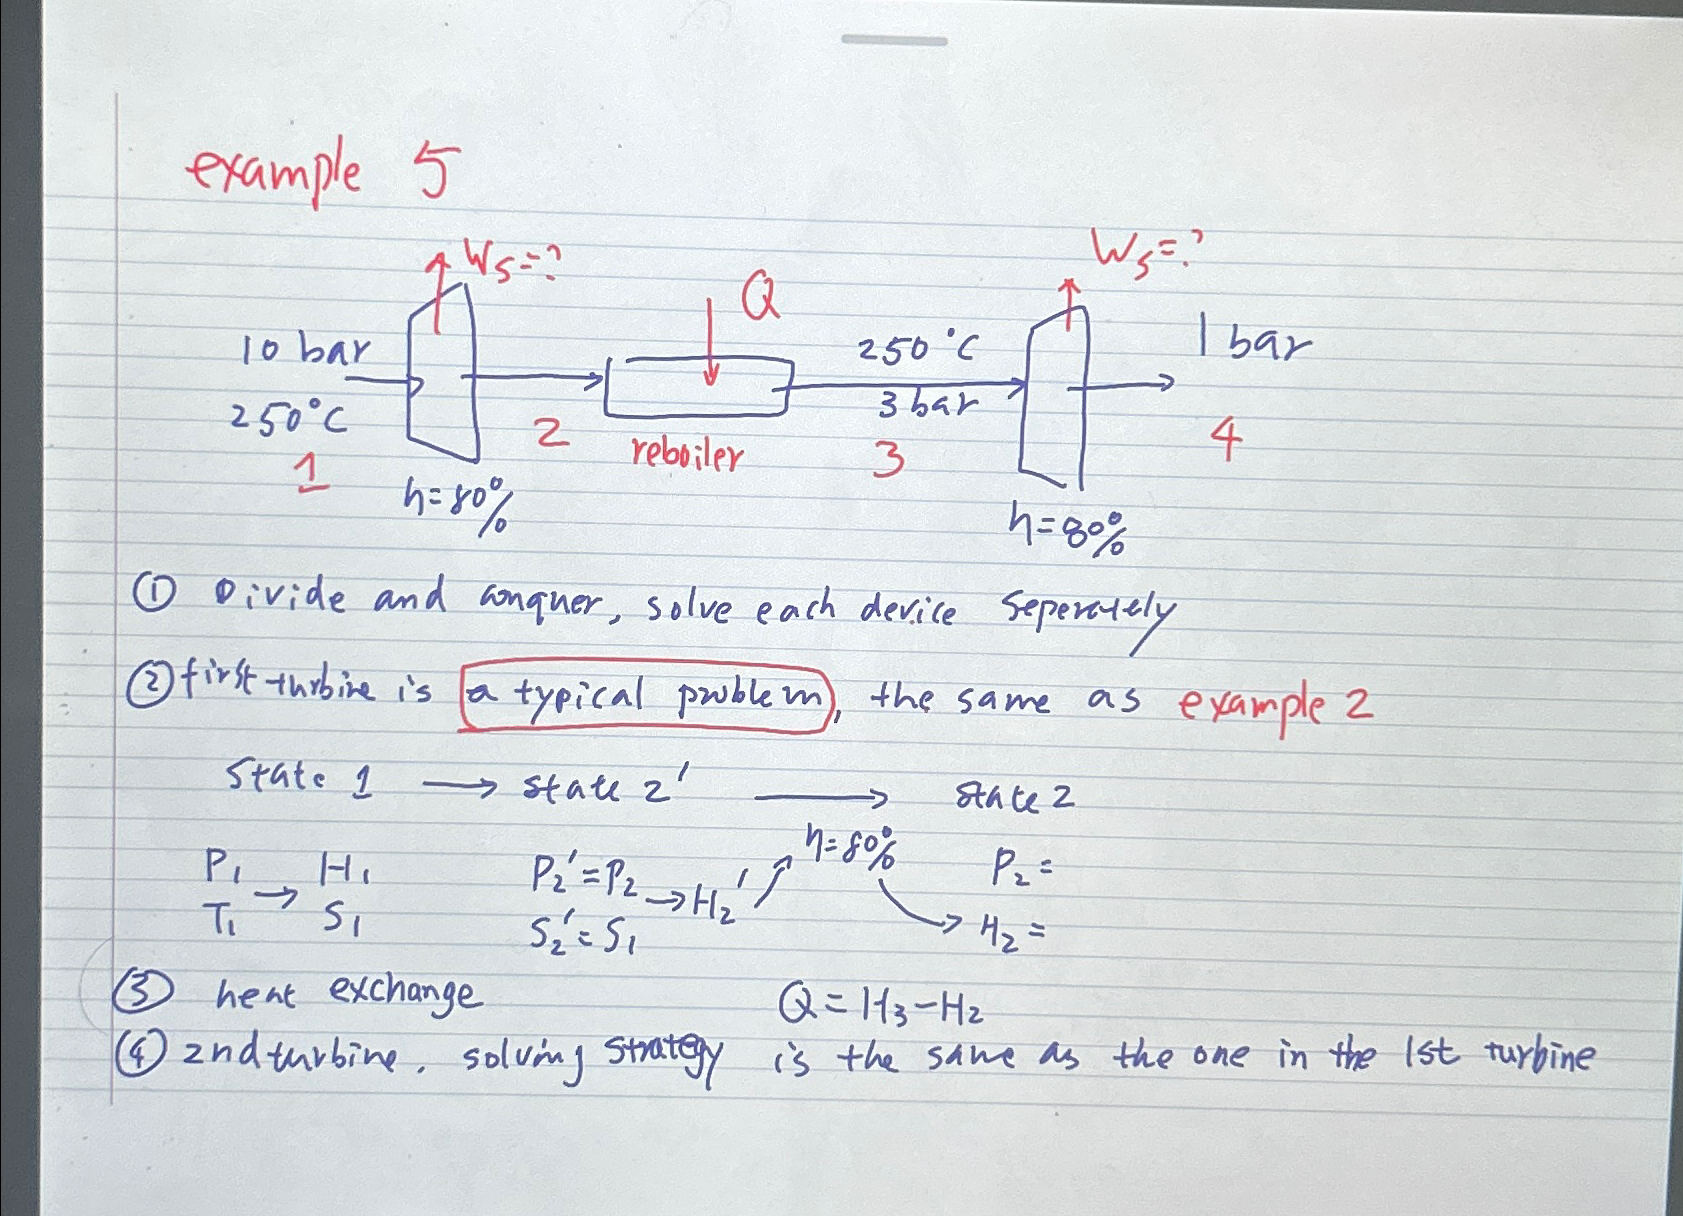 example 5
Ws=?
Ws=?
Q
10 bar
250°C
1 bar
250°C
3 bar
1
2
reboiler
3
4
η=80%
η=80%
① Divide and conquer, solve each device Seperately
② first turbine is a typical problem, the same as example 2
State 1 → state 2' → state 2
η=80%
P₁ → H₁ P₂'=P₂ → H₂' P₂=
T₁ S₁ S₂'=S₁ H₂=
③ heat exchange Q=H₃-H₂
④ 2nd turbine. solving strategy is the same as the one in the 1st turbine